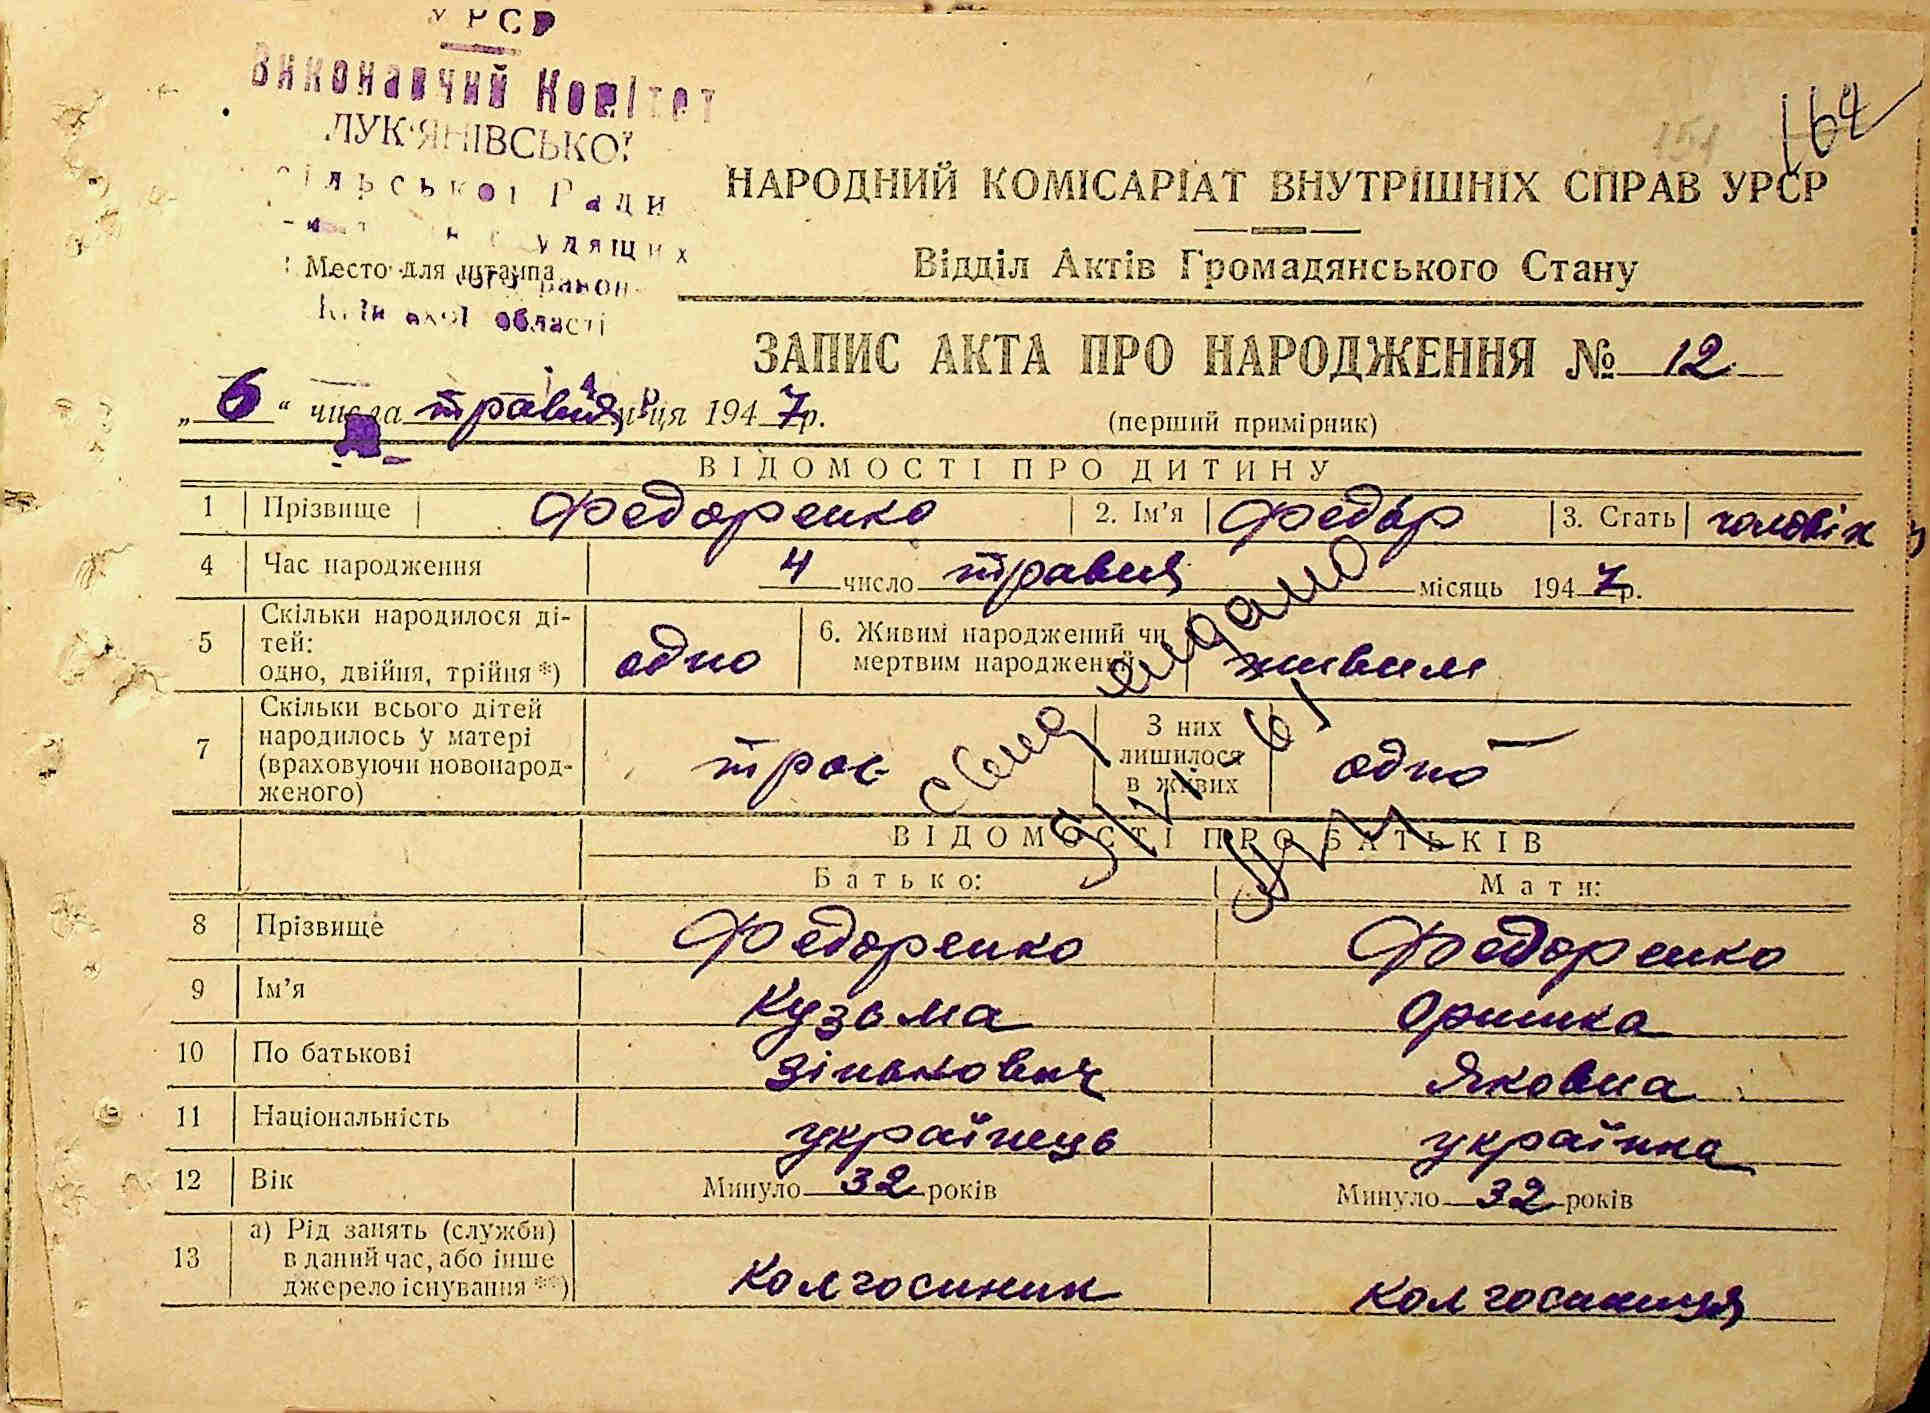 УРСР
Виконавчий Комітет
ЛУК'ЯНІВСЬКОЇ
сільської Ради
трудящих
Место для штампа
району
Київської області
151 164
НАРОДНИЙ КОМІСАРІАТ ВНУТРІШНІХ СПРАВ УРСР
Відділ Актів Громадянського Стану
ЗАПИС АКТА ПРО НАРОДЖЕННЯ № 12
„ 6 “ числа травня м-ця 1947 р.
(перший примірник)
ВІДОМОСТІ ПРО ДИТИНУ
1 Прізвище Федоренко 2. Ім'я Федір 3. Стать чоловіч
4 Час народження 4 число травня місяць 1947 р.
5 Скільки народилося ді-
тей:
одно, двійня, трійня *) одно 6. Живим народжений чи
мертвим народжений живим
7 Скільки всього дітей
народилось у матері
(враховуючи новонарод-
женого) троє З них
лишилося
в живих одно
Свид выдано
ВІДОМОСТІ ПРО БАТЬКІВ
Батько: Мати:
8 Прізвище Федоренко Федоренко
9 Ім'я Кузьма Оришка
10 По батькові Зінькович Яковна
11 Національність українець українка
12 Вік Минуло 32 років Минуло 32 років
13 а) Рід занять (служби)
в даний час, або інше
джерело існування **) Колгоспник Колгоспниця